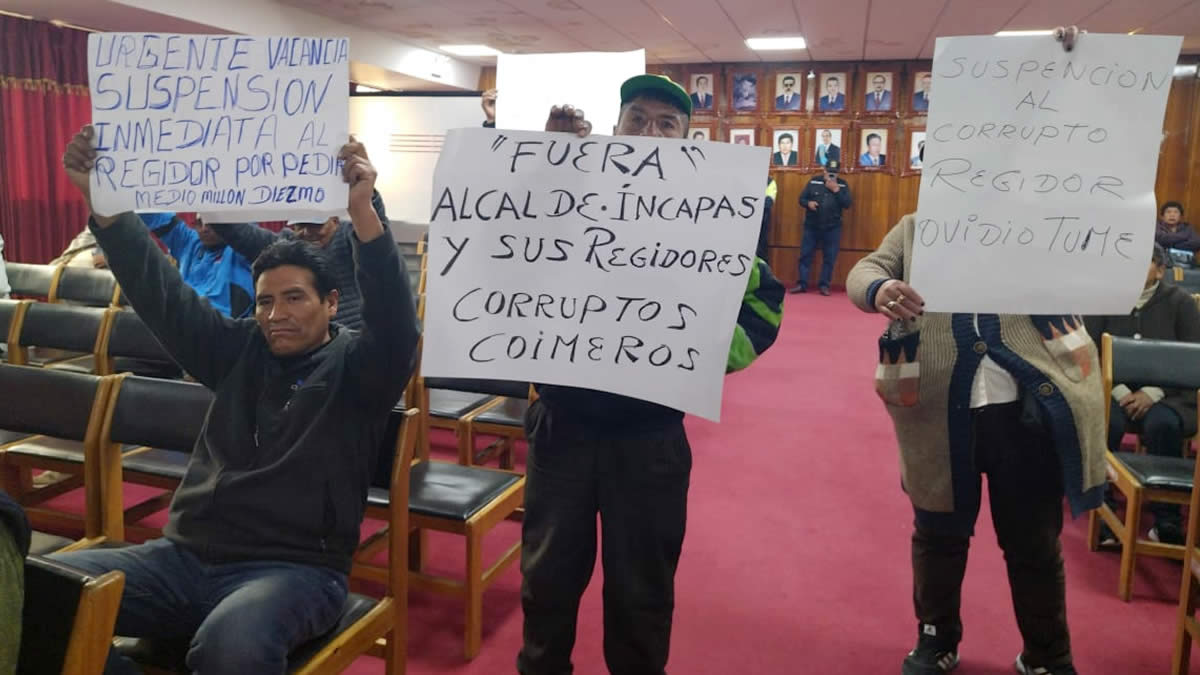 URGENTE VACANCIA
SUSPENSION
INMEDIATA AL
REGIDOR POR PEDIR
MEDIO MILLON DIEZMO
"FUERA"
ALCALDE. ÍNCAPAS
Y SUS REGIDORES
CORRUPTOS
COIMEROS
SUSPENCION
AL
CORRUPTO
REGIDOR
OVIDIO TUME